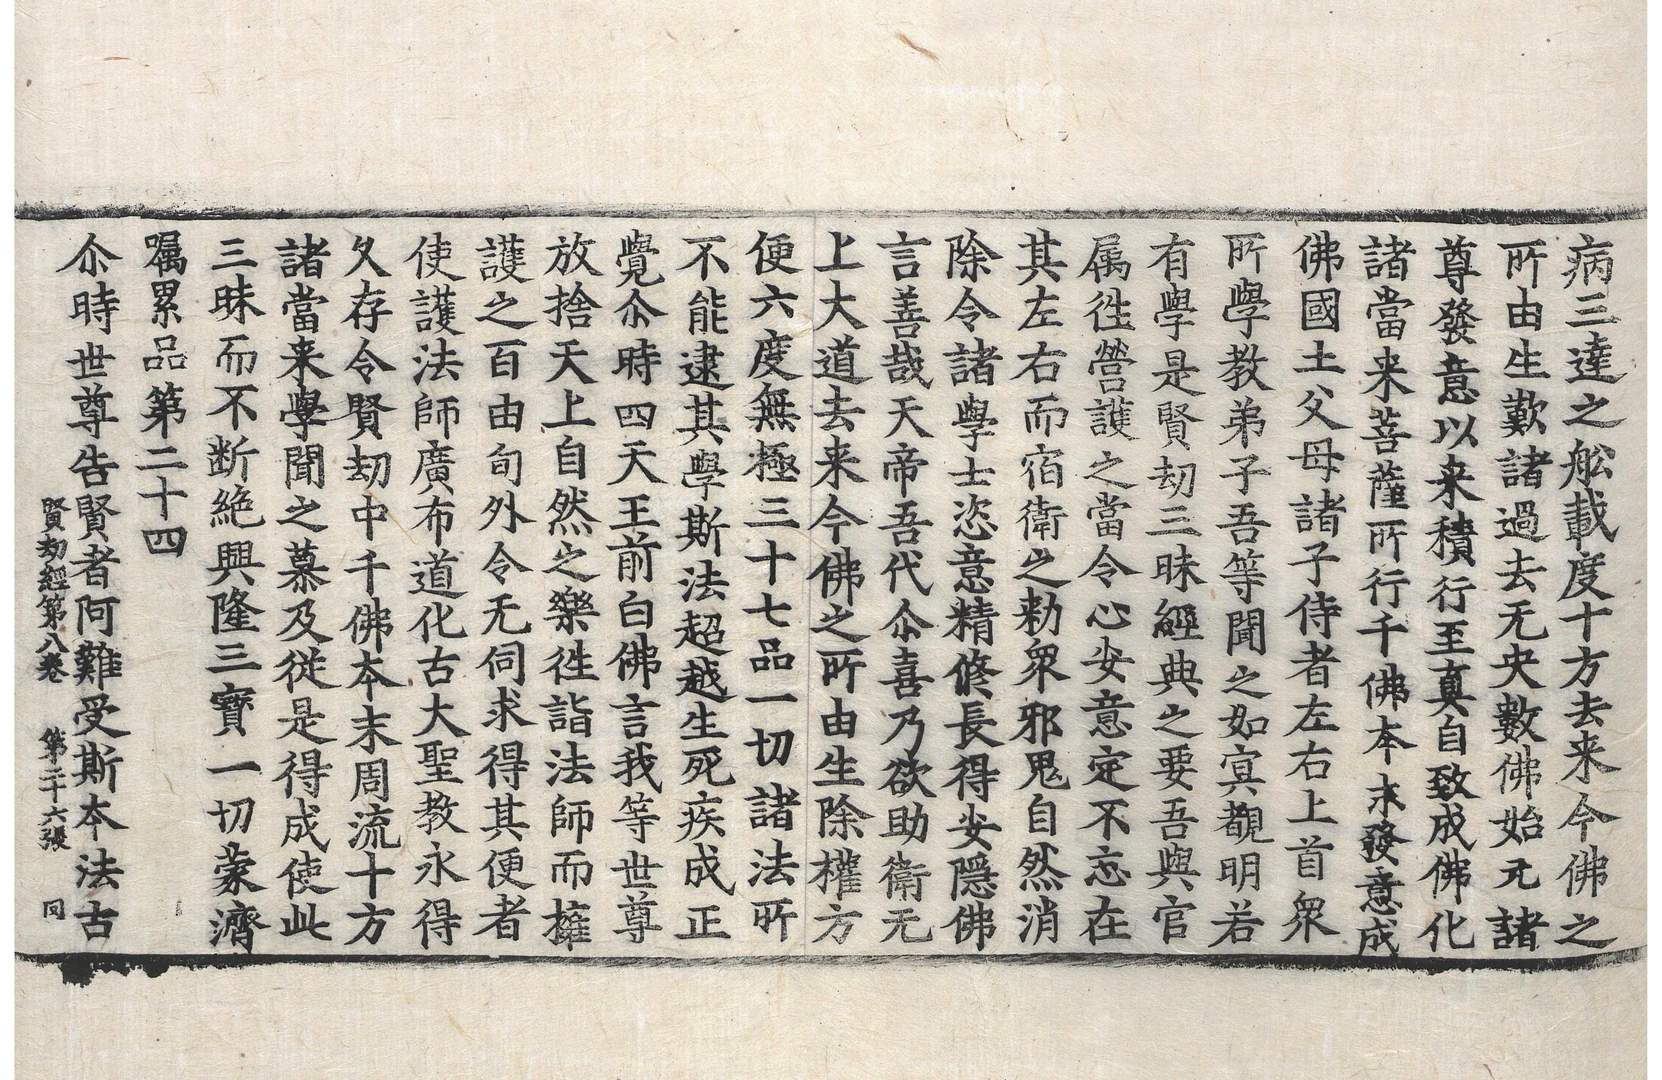 病三達之舩載度十方去来今佛之
所由生歎諸過去无央數佛始元諸
尊發意以来積行至真自致成佛化
諸當来菩薩所行千佛本末發意成
佛國土父母諸子侍者左右上首衆
所學教弟子吾等聞之如冥覩明若
有學是賢劫三昧經典之要吾與官
属徃營護之當令心安意定不忘在
其左右而宿衛之勑衆邪鬼自然消
除令諸學士恣意精修長得安隱佛
言善哉天帝吾代尒喜乃欲助衛无
上大道去来今佛之所由生除權方
便六度無極三十七品一切諸法所
不能逮其學斯法超越生死疾成正
覺尒時四天王前白佛言我等世尊
放捨天上自然之樂徃詣法師而擁
護之百由旬外令无伺求得其便者
使護法師廣布道化古大聖教永得
久存令賢劫中千佛本末周流十方
諸當来學聞之慕及従是得成使此
三昧而不断絶興隆三寶一切蒙濟
嘱累品第二十四
尒時世尊告賢者阿難受斯本法古
賢劫經第八卷　第二十六張　同